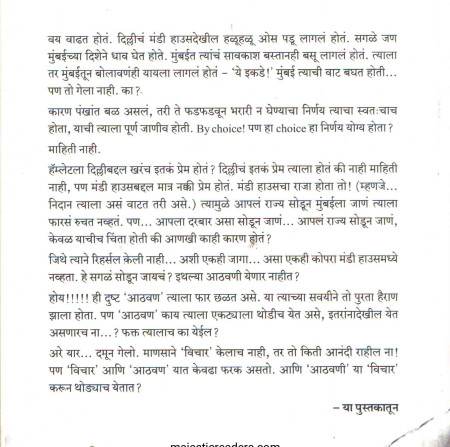 वय वाढत होतं. दिल्लीचं मंडी हाउसदेखील हळूहळू ओस पडू लागलं होतं. सगळे जण
मुंबईच्या दिशेने धाव घेत होते. मुंबईत त्यांचं सावकाश बस्तानही बसू लागलं होतं. त्याला
तर मुंबईतून बोलावणंही यायला लागलं होतं – ‘ये इकडे!’ मुंबई त्याची वाट बघत होती...
पण तो गेला नाही. का?
कारण पंखांत बळ असलं, तरी ते फडफडवून भरारी न घेण्याचा निर्णय त्याचा स्वतःचाच
होता, याची त्याला पूर्ण जाणीव होती. By choice! पण हा choice हा निर्णय योग्य होता?
माहिती नाही.
हॅम्लेटला दिल्लीबद्दल खरंच इतकं प्रेम होतं? दिल्लीचं इतकं प्रेम त्याला होतं की नाही माहिती
नाही, पण मंडी हाउसबद्दल मात्र नक्की प्रेम होतं. मंडी हाउसचा राजा होता तो! (म्हणजे...
निदान त्याला असं वाटत तरी असे.) त्यामुळे आपलं राज्य सोडून मुंबईला जाणं त्याला
फारसं रुचत नव्हतं. पण... आपला दरबार असा सोडून जाणं... आपलं राज्य सोडून जाणं,
केवळ याचीच चिंता होती की आणखी काही कारण होतं?
जिथे त्याने रिहर्सल केली नाही... अशी एकही जागा... असा एकही कोपरा मंडी हाउसमध्ये
नव्हता. हे सगळं सोडून जायचं? इथल्या आठवणी येणार नाहीत?
होय!!!!! ही दुष्ट ‘आठवण’ त्याला फार छळत असे. या त्याच्या सवयीने तो पुरता हैराण
झाला होता. पण ‘आठवण’ काय त्याला एकट्याला थोडीच येत असे, इतरांनादेखील येत
असणारच ना...? फक्त त्यालाच का येईल?
अरे यार... दमून गेलो. माणसाने ‘विचार’ केलाच नाही, तर तो किती आनंदी राहील ना!
पण ‘विचार’ आणि ‘आठवण’ यात केवढा फरक असतो. आणि ‘आठवणी’ या ‘विचार’
करून थोड्याच येतात?
– या पुस्तकातून
majesticreaders.com